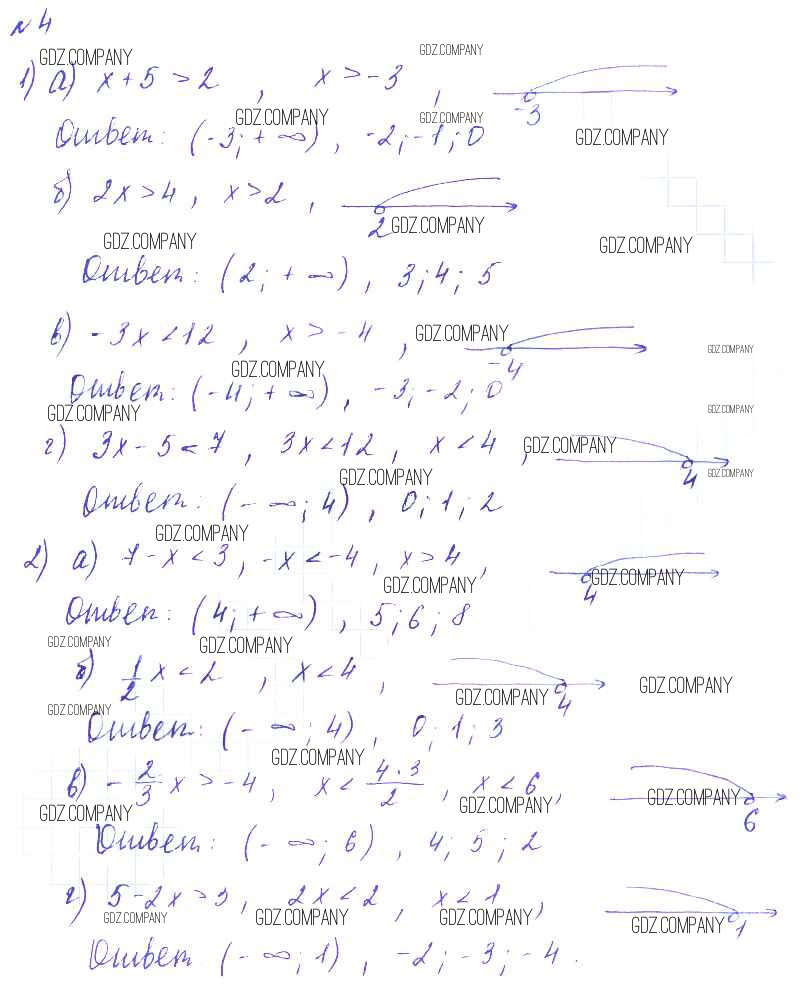 №4
GDZ.COMPANY GDZ.COMPANY
1) а) x + 5 > 2, x > -3, -3
GDZ.COMPANY GDZ.COMPANY
Ответ: (-3; +∞), -2; -1; 0 GDZ.COMPANY
б) 2x > 4, x > 2, 2 GDZ.COMPANY
GDZ.COMPANY GDZ.COMPANY
Ответ: (2; +∞), 3; 4; 5
в) -3x < 12, x > -4, GDZ.COMPANY -4 GDZ.COMPANY
GDZ.COMPANY
Ответ: (-4; +∞), -3; -2; 0
GDZ.COMPANY GDZ.COMPANY
г) 3x - 5 < 7, 3x < 12, x < 4, GDZ.COMPANY 4 GDZ.COMPANY
GDZ.COMPANY
Ответ: (-∞; 4), 0; 1; 2
GDZ.COMPANY
2) а) 7 - x < 3, -x < -4, x > 4, 4 GDZ.COMPANY
GDZ.COMPANY
Ответ: (4; +∞), 5; 6; 8
GDZ.COMPANY GDZ.COMPANY
б) 1/2 x < 2, x < 4, GDZ.COMPANY 4 GDZ.COMPANY
GDZ.COMPANY
Ответ: (-∞; 4), 0; 1; 3
GDZ.COMPANY
в) -2/3 x > -4, x < 4·3/2, x < 6, GDZ.COMPANY 6
GDZ.COMPANY GDZ.COMPANY
Ответ: (-∞; 6), 4; 5; 2
г) 5 - 2x > 3, 2x < 2, x < 1, 1
GDZ.COMPANY GDZ.COMPANY GDZ.COMPANY GDZ.COMPANY
Ответ: (-∞; 1), -2; -3; -4.